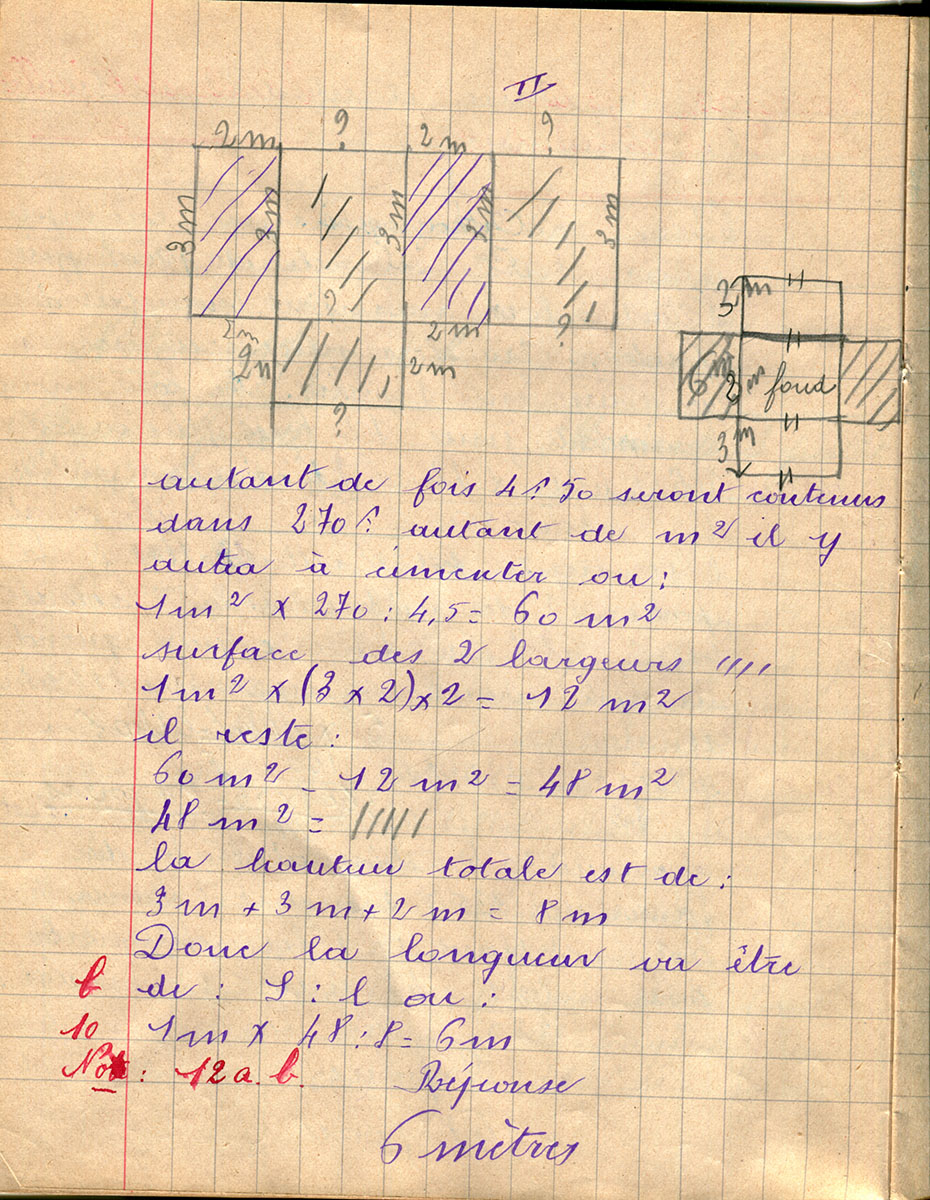 II
2m ? 2m ?
3m 3m 3m 3m 3m
? 
2m 2m ?
2m 2m
?
3m
6m 2m fond
3m
autant de fois 4f 50 seront contenus
dans 270f autant de m² il y
aura à cimenter ou :
1m² x 270 : 4,5 = 60 m²
surface des 2 largeurs ////
1m² x (3 x 2) x 2 = 12 m²
il reste :
60 m² - 12 m² = 48 m²
48 m² = /////
la hauteur totale est de :
3m + 3m + 2m = 8m
Donc la longueur va être
b de : S : l ou :
10 1m x 48 : 8 = 6m
Note : 12 a.b. Réponse
6 mètres